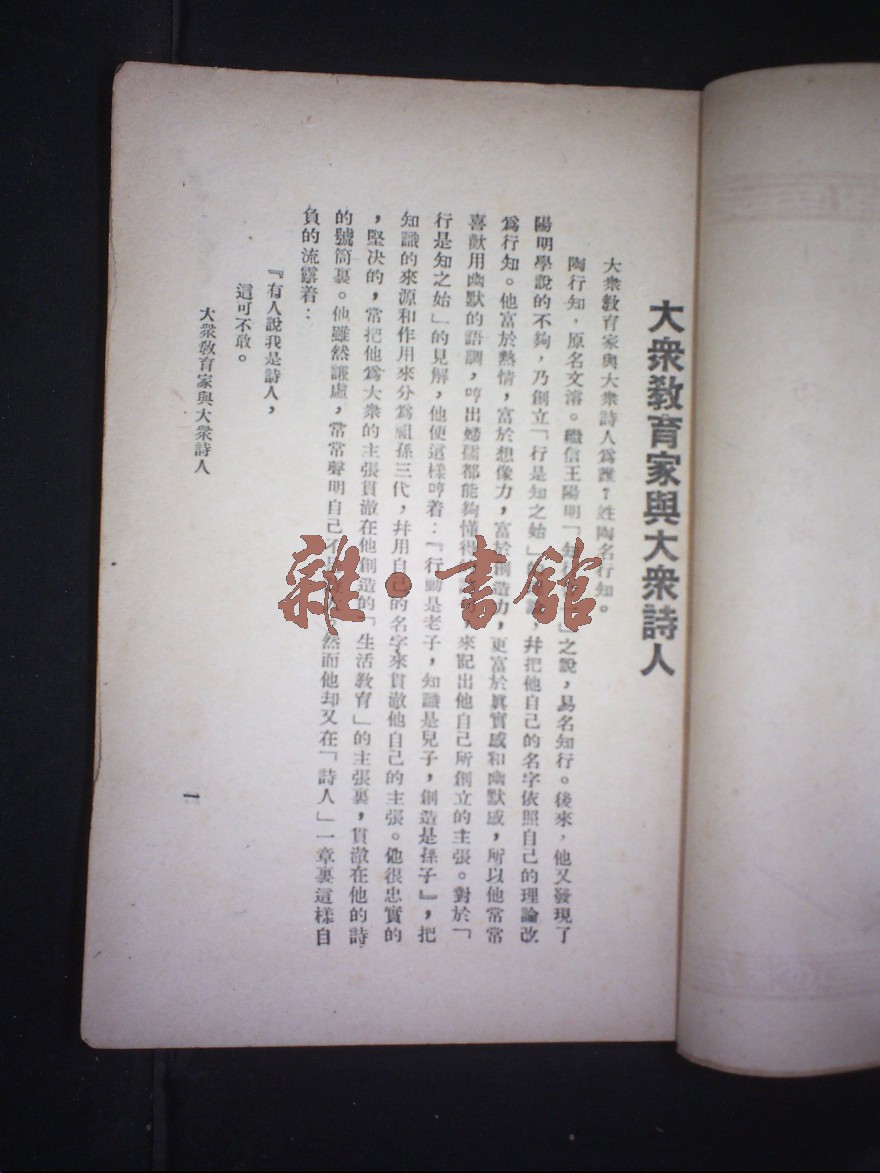 大衆教育家與大衆詩人
大衆教育家與大衆詩人爲誰？姓陶名行知。
陶行知，原名文濬。繼信王陽明「知行
」之說，易名知行。後來，他又發現了
陽明學說的不夠，乃創立「行是知之始」的
，幷把他自己的名字依照自己的理論改
爲行知。他富於熱情，富於想像力，富於創造力，更富於眞實感和幽默感，所以他常常
喜歡用幽默的語調，哼出婦孺都能夠懂得
來配出他自己所創立的主張。對於「
行是知之始」的見解，他便這樣哼着：『行動是老子，知識是兒子，創造是孫子』，把
知識的來源和作用來分爲祖孫三代，幷用自己的名字來貫澈他自己的主張。他很忠實的
，堅决的，常把他爲大衆的主張貫澈在他創造的「生活教育」的主張裏，貫澈在他的詩
的號筒裏。他雖然謙虛，常常聲明自己不
然而他却又在「詩人」一章裏這樣自
負的流露着：
『有人說我是詩人，
這可不敢。
大衆教育家與大衆詩人
一
雜·書舘